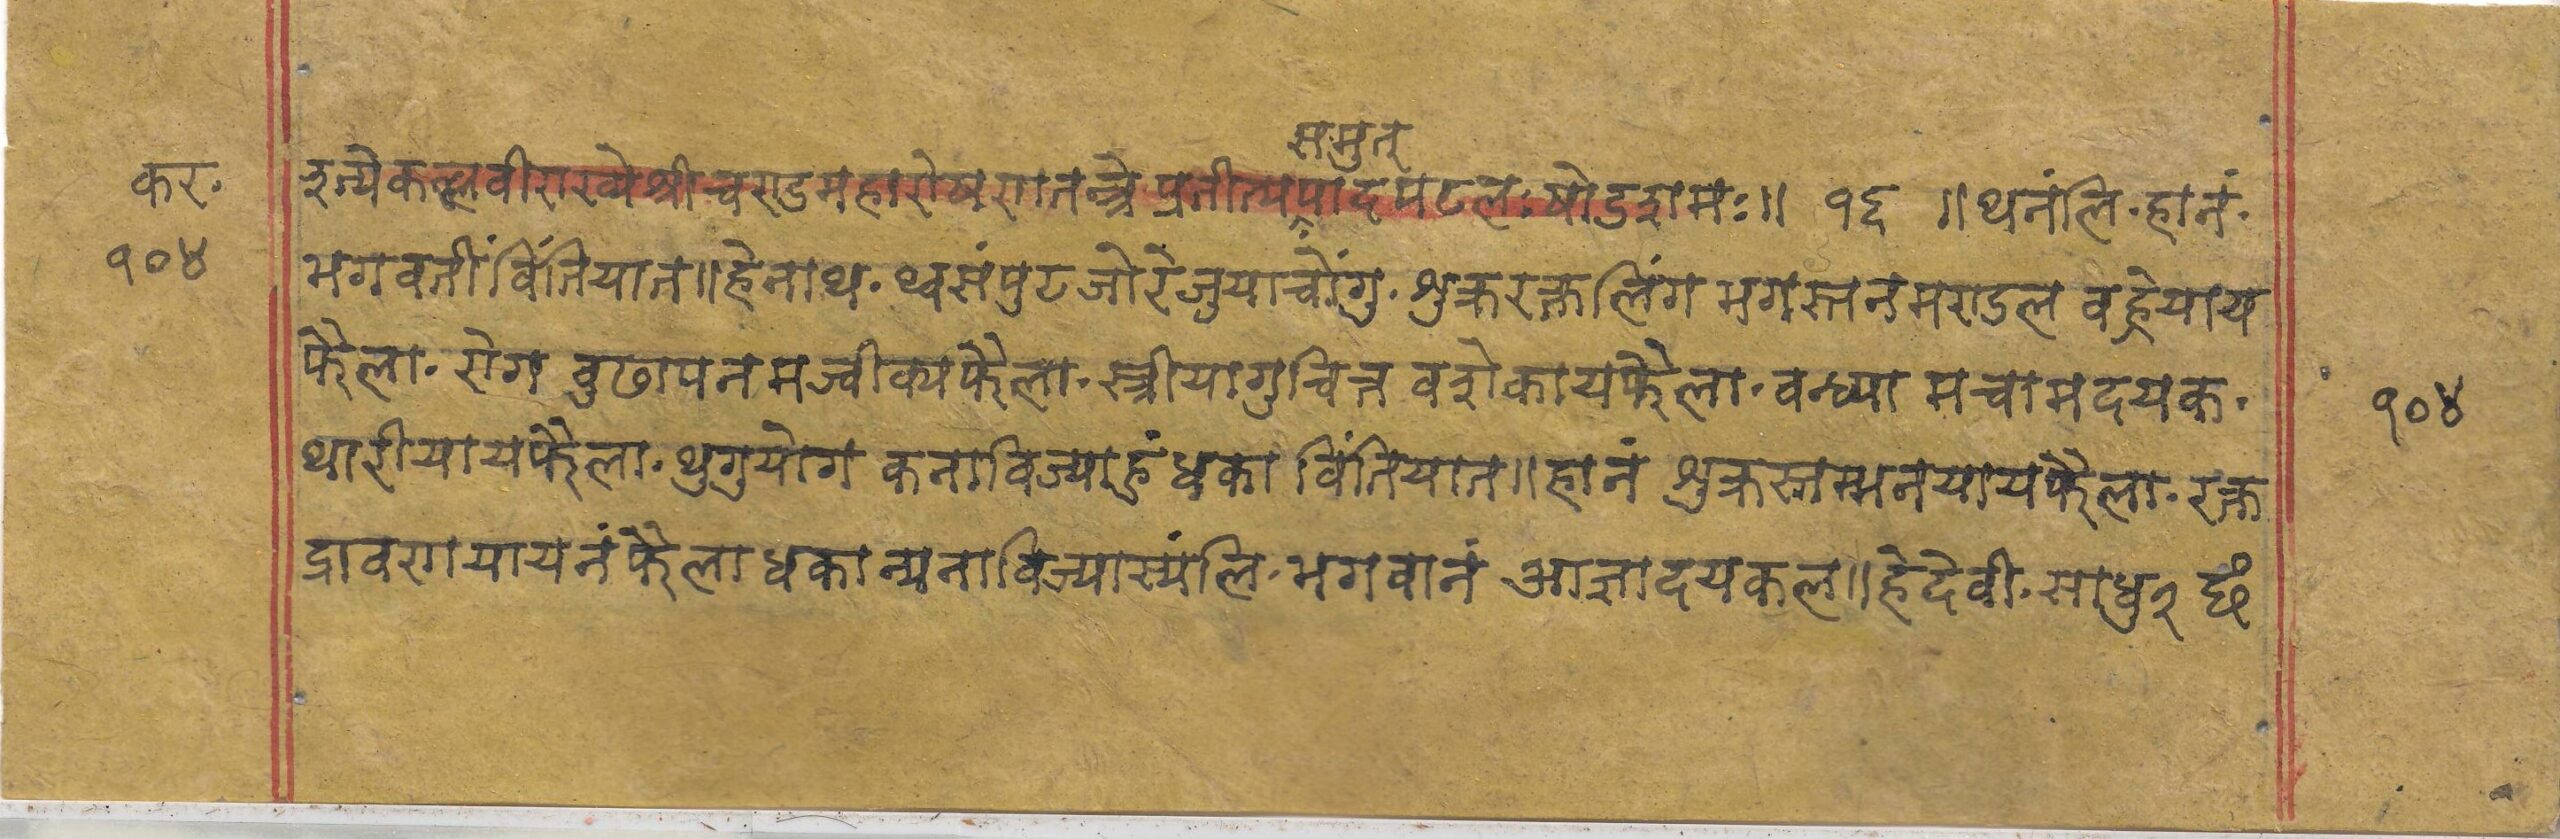 समुत्
कर. इत्येकल्लवीराख्ये श्रीचण्डमहारोषणतन्त्रे प्रतीत्यपादपटलः षोडशमः॥ १६ ॥थनंलि.हानं.
१०४ भगवतीं विंतियात॥हेनाथ. थ्वसंपुट जोरेजुयाचोंगु. शुक्ररक्तलिंग भगस्तनमण्डल वह्रेयाय
फैला. रोग वुढापनमज्वीक्यफैला. स्त्रीयागुचित्त वशेकायफैला. वन्ध्या मचामदयक. १०४
थारीयायफैला. थुगुयोग कनाविज्याहुं धका विंतियात॥हानं शुक्रस्तम्भनयायफैला. रक्त
द्रावणयायनंफैला धकान्यनाविज्यास्यंलि. भगवानं आज्ञादयकल॥हेदेवी. साधु२ छं